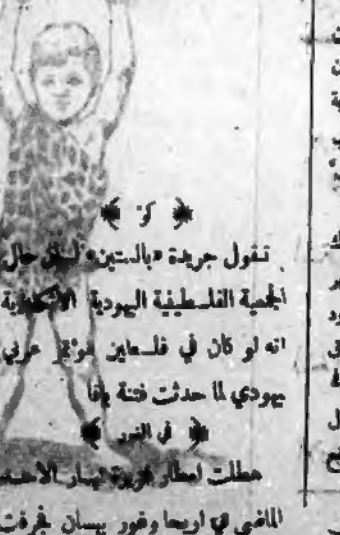 كز
تقول جريدة «بالستين» لسان حال
الجمعية الفلسطينية اليهودية الانكليزية
انه لو كان في فلسطين مؤتمر عربي
يهودي لما حدثت فتنة يافا
في الغور
هطلت امطار غزيرة نهار الاحد
الماضي في اريحا وغور بيسان فجرفت